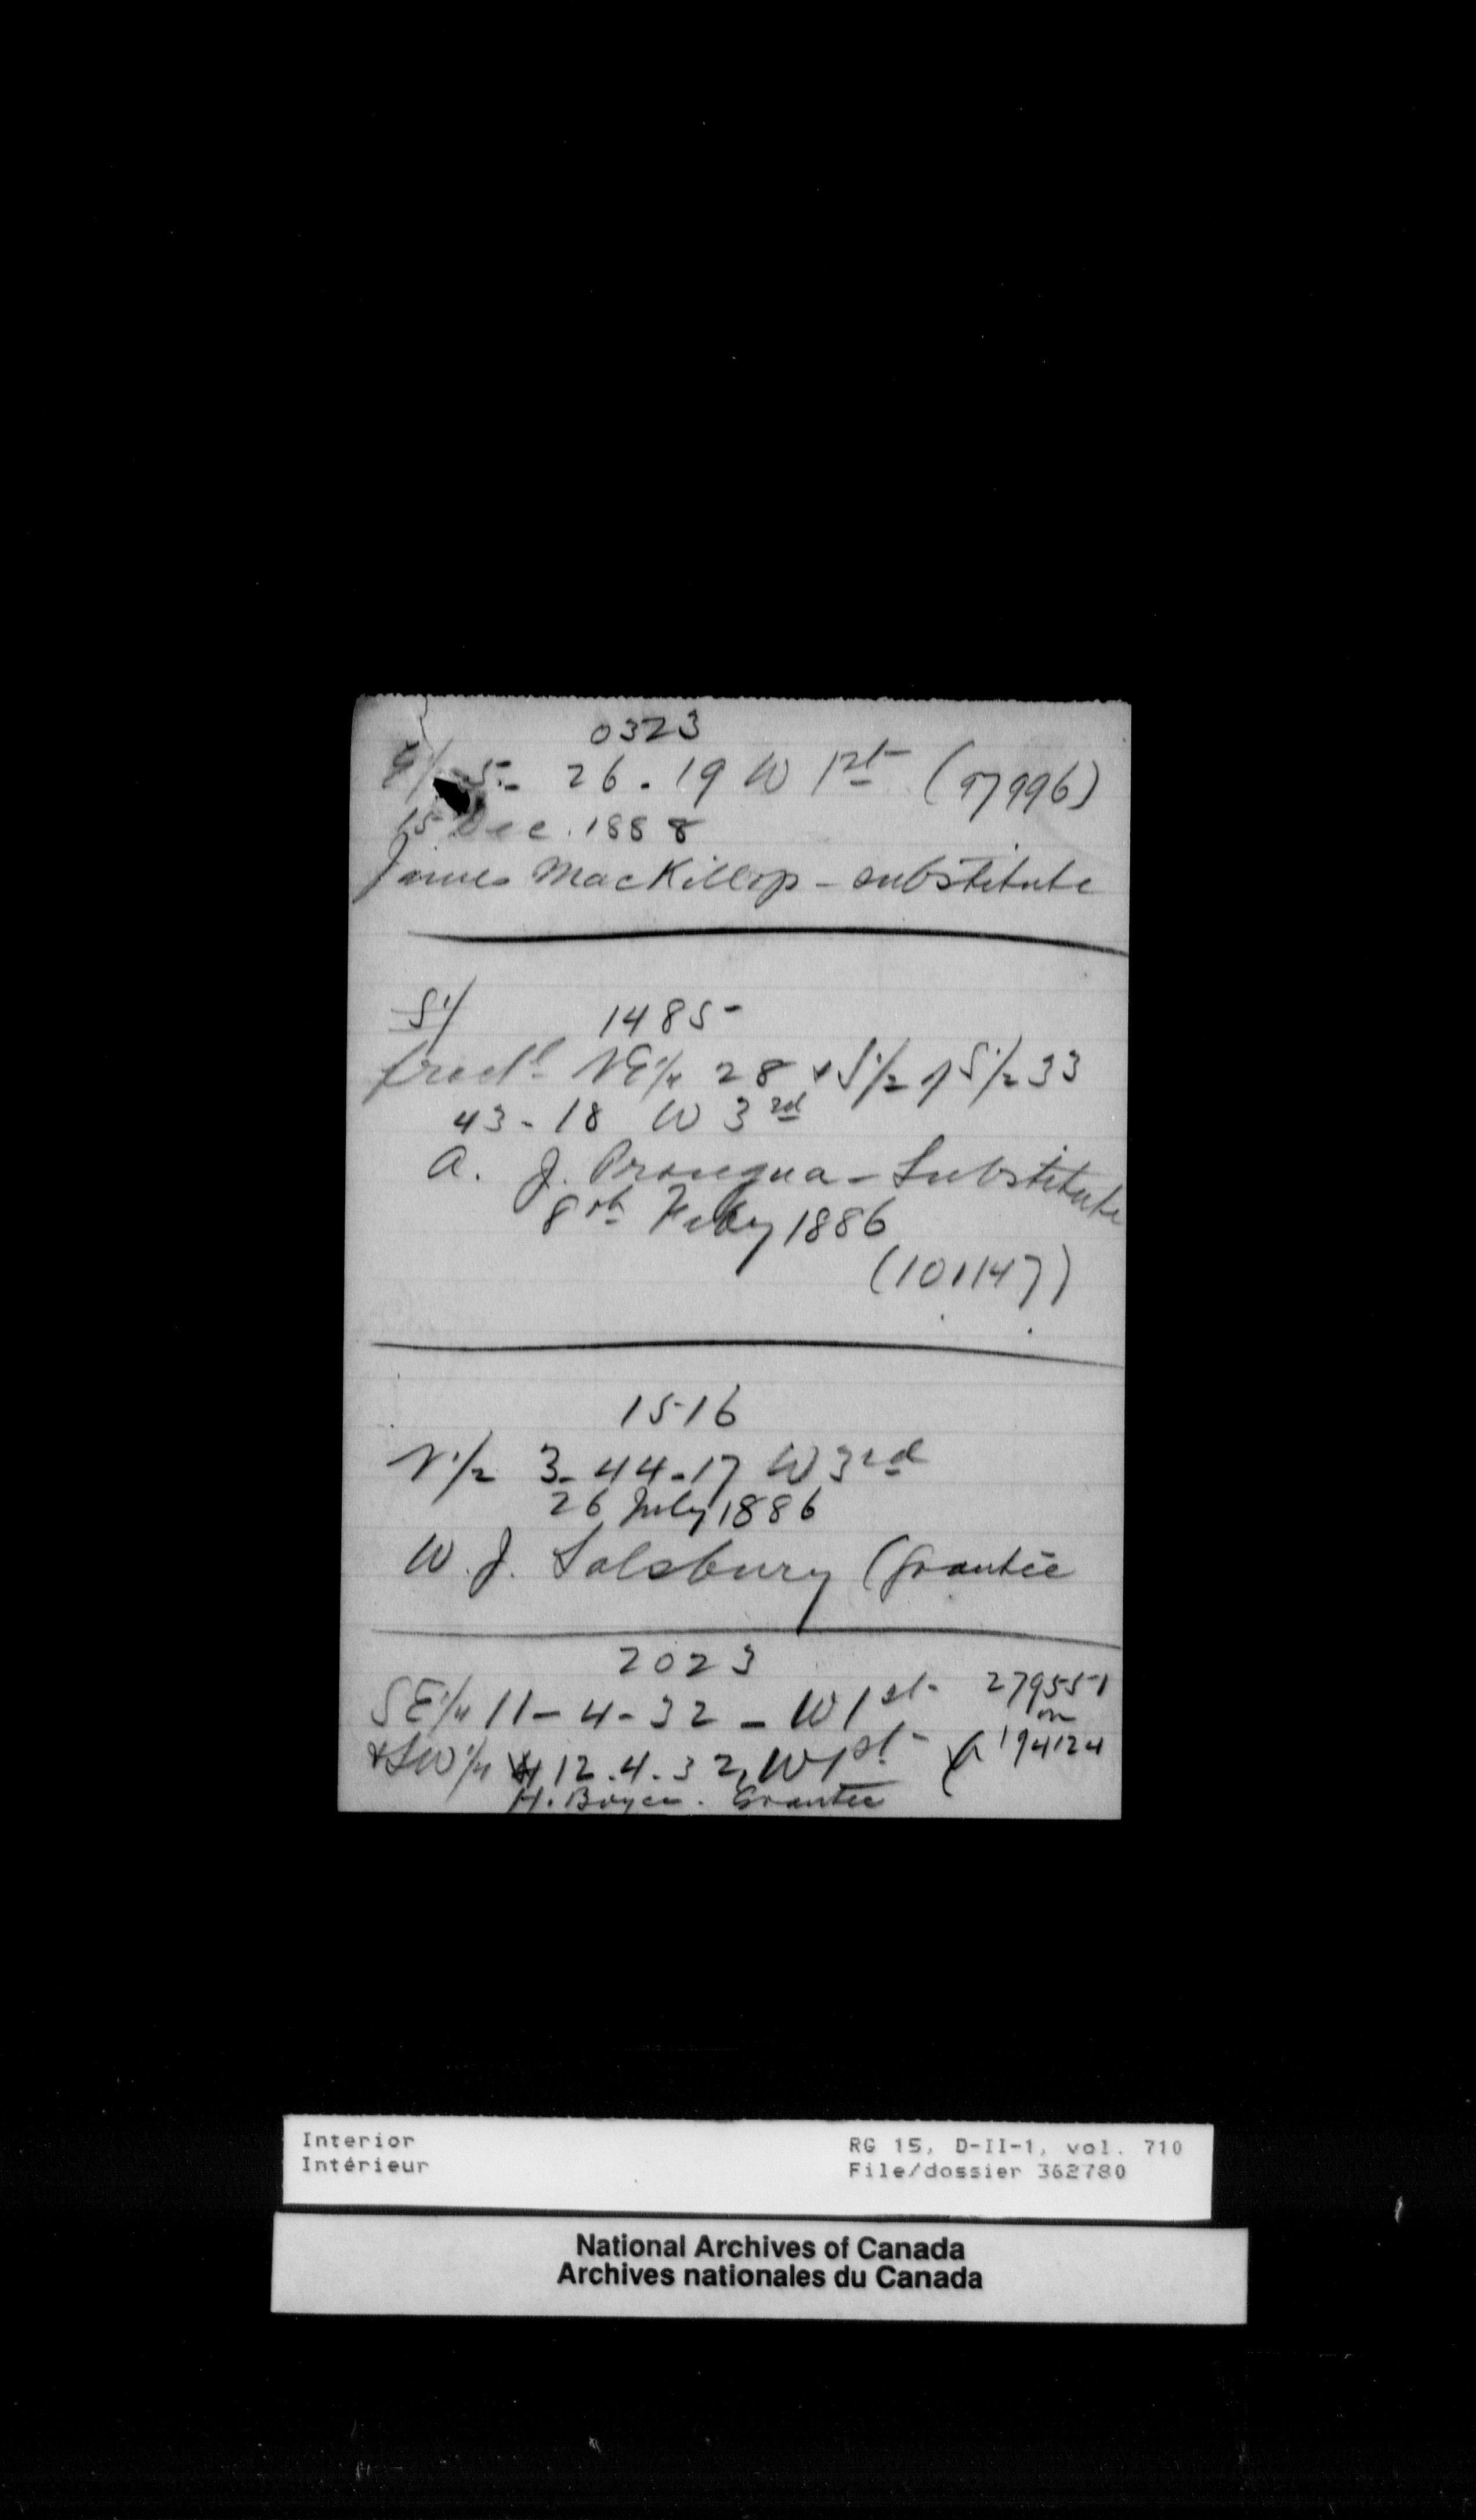 0323
E 1/2 5 - 26 . 19 W 1st (97996)
15 Dec . 1888
James MacKillop - substitute
S 1/
1485
fracl NE 1/4 28 & S 1/2 of S 1/2 33
43 - 18 W 3rd
A. J. - Substitute
8th Feby 1886
(101147)
1516
N 1/2 3 - 44 - 17 W 3rd
26 July 1886
W. J. Salsbury (Grantee
2023
SE 1/4 11 - 4 - 32 - W 1st 279551
on
& SW 1/4 12 . 4 . 32, W 1st 194124
H. Boyer . Grantee
Interior
Intérieur
RG 15, D-II-1, vol. 710
File/dossier 362780
National Archives of Canada
Archives nationales du Canada